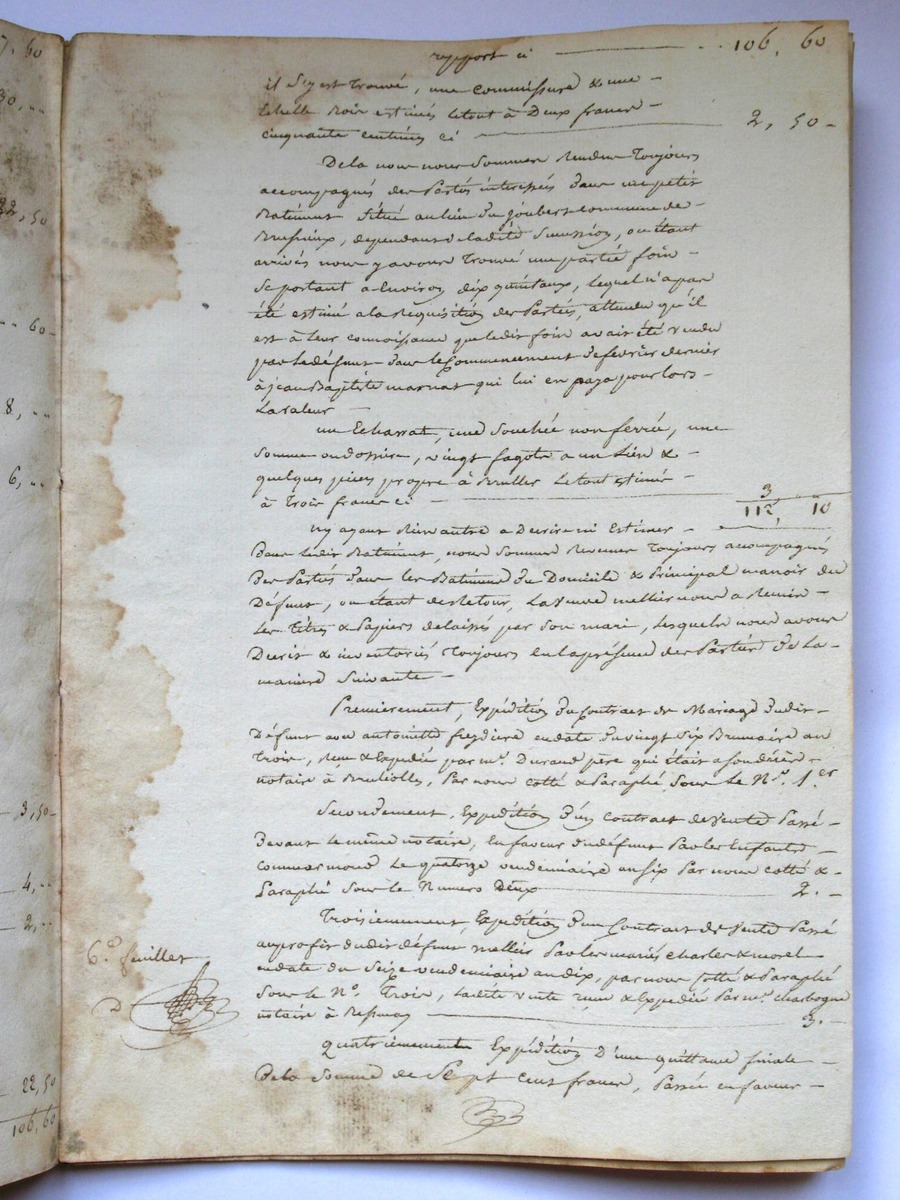 7, 60
30, ..
22, 50
.. 60 -
8, ..
6, ..
3, 50
4, ..
2, ..
22, 50
106, 60
rapport ci .. 106, 60
il s'y est trouvé, une commissure & une
Echelle Noir estimés le tout à Deux francs
cinquante centimes ci 2, 50 -
De la nous nous sommes Rendus Toujours
accompagnés des Partés interessées dans un petit
Batiment Situé au lieu du joubert commune de
Brussieux, dependant de la dite Succession, ou étant
arrivés nous y avons Trouvé une partie foin
Se portant a Environ dix quintaux, lequel n'a pas
été estimé a la Requisition des Partés, attendu qu'il
est à leur connoissance que ledit foin avait été vendu
par le défunt dans le Commencement de fevrier dernier
à jean Baptiste marnat qui lui en paya pour lors
La valeur
un Echarrat, une Souchée non ferrée, une
Somme ou dossire, vingt fagots a un Lien &
quelques pieces propre à Bruller le tout estimé
à Trois francs ci 3
112, 10
N'y ayant Rien autre a Decrire ni Estimer
Dans ledit Batiment, nous Sommes Revenus Toujours accompagnés
Des Partés dans les Batiments du Domicile & Principal manoir du
Défunt, ou étant de Retour, La veuve mellier nous a Remis
Les Titres & Papiers delaissés par Son mari, lesquels nous avons
Decrit & inventoriés Toujours en la présence des Partés De la
maniere Suivante
Premierement, Expédition du Contrat de Mariage dudit
Défunt avec antoinette en date du vingt Six Brumaire an
Trois, Reçu & Expedié par me. Durand père qui était
notaire à Brulliolles, Par nous cotté & Paraphé Sous Le No. 1er
Secondement, Expédition d'un Contract de Vente Passé
Devant le même notaire, En faveur du défunt Par les Enfants
commarmond Le quatorze vendemiaire an Six Par nous cotté &
Paraphé Sous le Numero Deux 2. -
Troisiemement, Expédition d'un Contract de Vente Passé
au profit dudit défunt mellier Par les mariés Charles & morel
en date du Seize vendemiaire an dix, par nous Cotté & Paraphé
Sous le No. Trois, La dite vente reçue & Expediée Par me. charbogne
notaire à 3. -
6e. feuillet
Quatriemement Expédition D'une quittance finale
De la Somme de Sept Cens francs, Passée en faveur